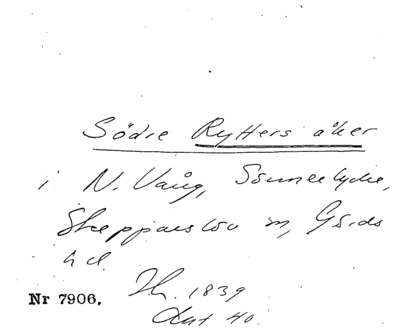 Södre Ryttersåker
i N. Vång, Sunnerlycke,
Skepparslöv sn, Gärds
hd.
Nr 7906. Th. 1839
Akt 40